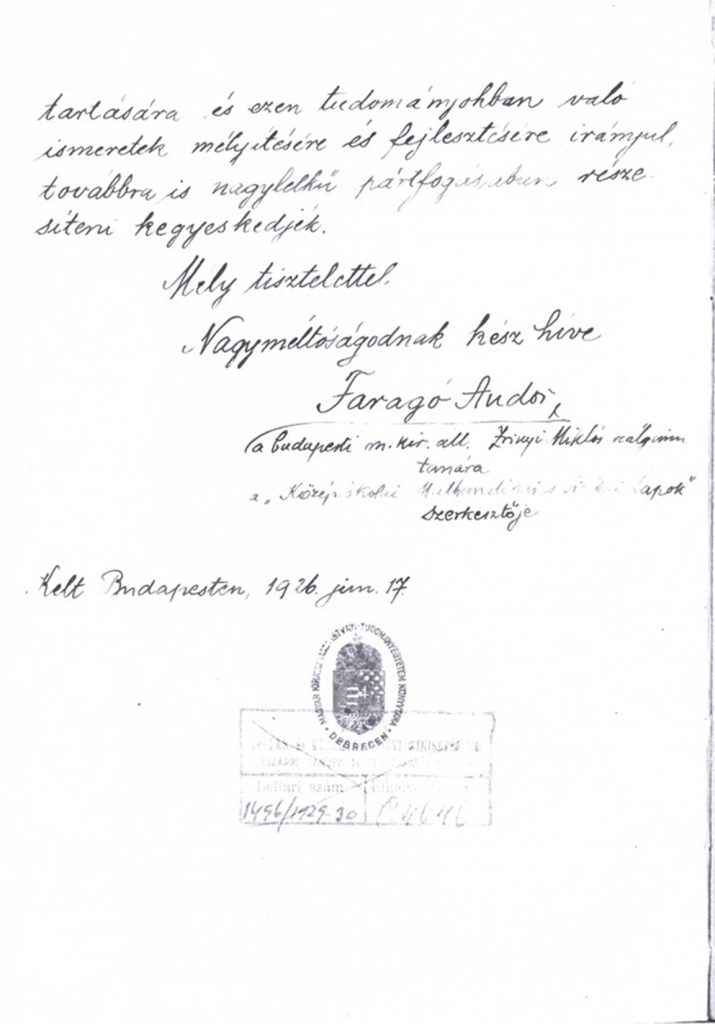 tartására és ezen tudományokban való
ismeretek mélyítésére és fejlesztésére irányul,
továbbra is nagylelkű pártfogásában része-
síteni kegyeskedjék.
Mély tisztelettel
Nagyméltóságodnak kész híve
Faragó Andor
a budapesti m. kir. áll. Zrinyi Miklós reálgimn
tanára
a „Középiskolai Lapok"
szerkesztője
Kelt Budapesten, 1926. jun. 17.
MAGYAR KIRÁLYI ISTVÁN TUDOMÁNYEGYETEM KÖNYVTÁRA
• DEBRECEN •
MINISZTÉRIUM
Leltári szám
1496/1929-30